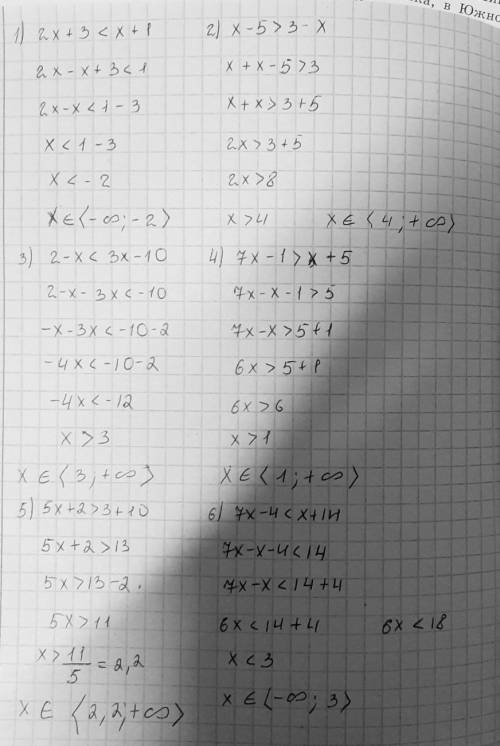 ка, в Южно
1) 2x+3 < x+1
2x-x+3<1
2x-x<1-3
x<1-3
x<-2
x∈⟨-∞;-2⟩
2) x-5>3-x
x+x-5>3
x+x>3+5
2x>3+5
2x>8
x>4 x∈⟨4;+∞⟩
3) 2-x< 3x-10
2-x-3x<-10
-x-3x<-10-2
-4x<-10-2
-4x<-12
x>3
x∈⟨3;+∞⟩
4) 7x-1>x+5
7x-x-1>5
7x-x>5+1
6x>5+1
6x>6
x>1
x∈⟨1;+∞⟩
5) 5x+2>3+10
5x+2>13
5x>13-2.
5x>11
x>11/5=2,2
x∈ ⟨2,2;+∞⟩
6) 7x-4<x+14
7x-x-4<14
7x-x<14+4
6x<14+4 6x<18
x<3
x∈⟨-∞;3⟩